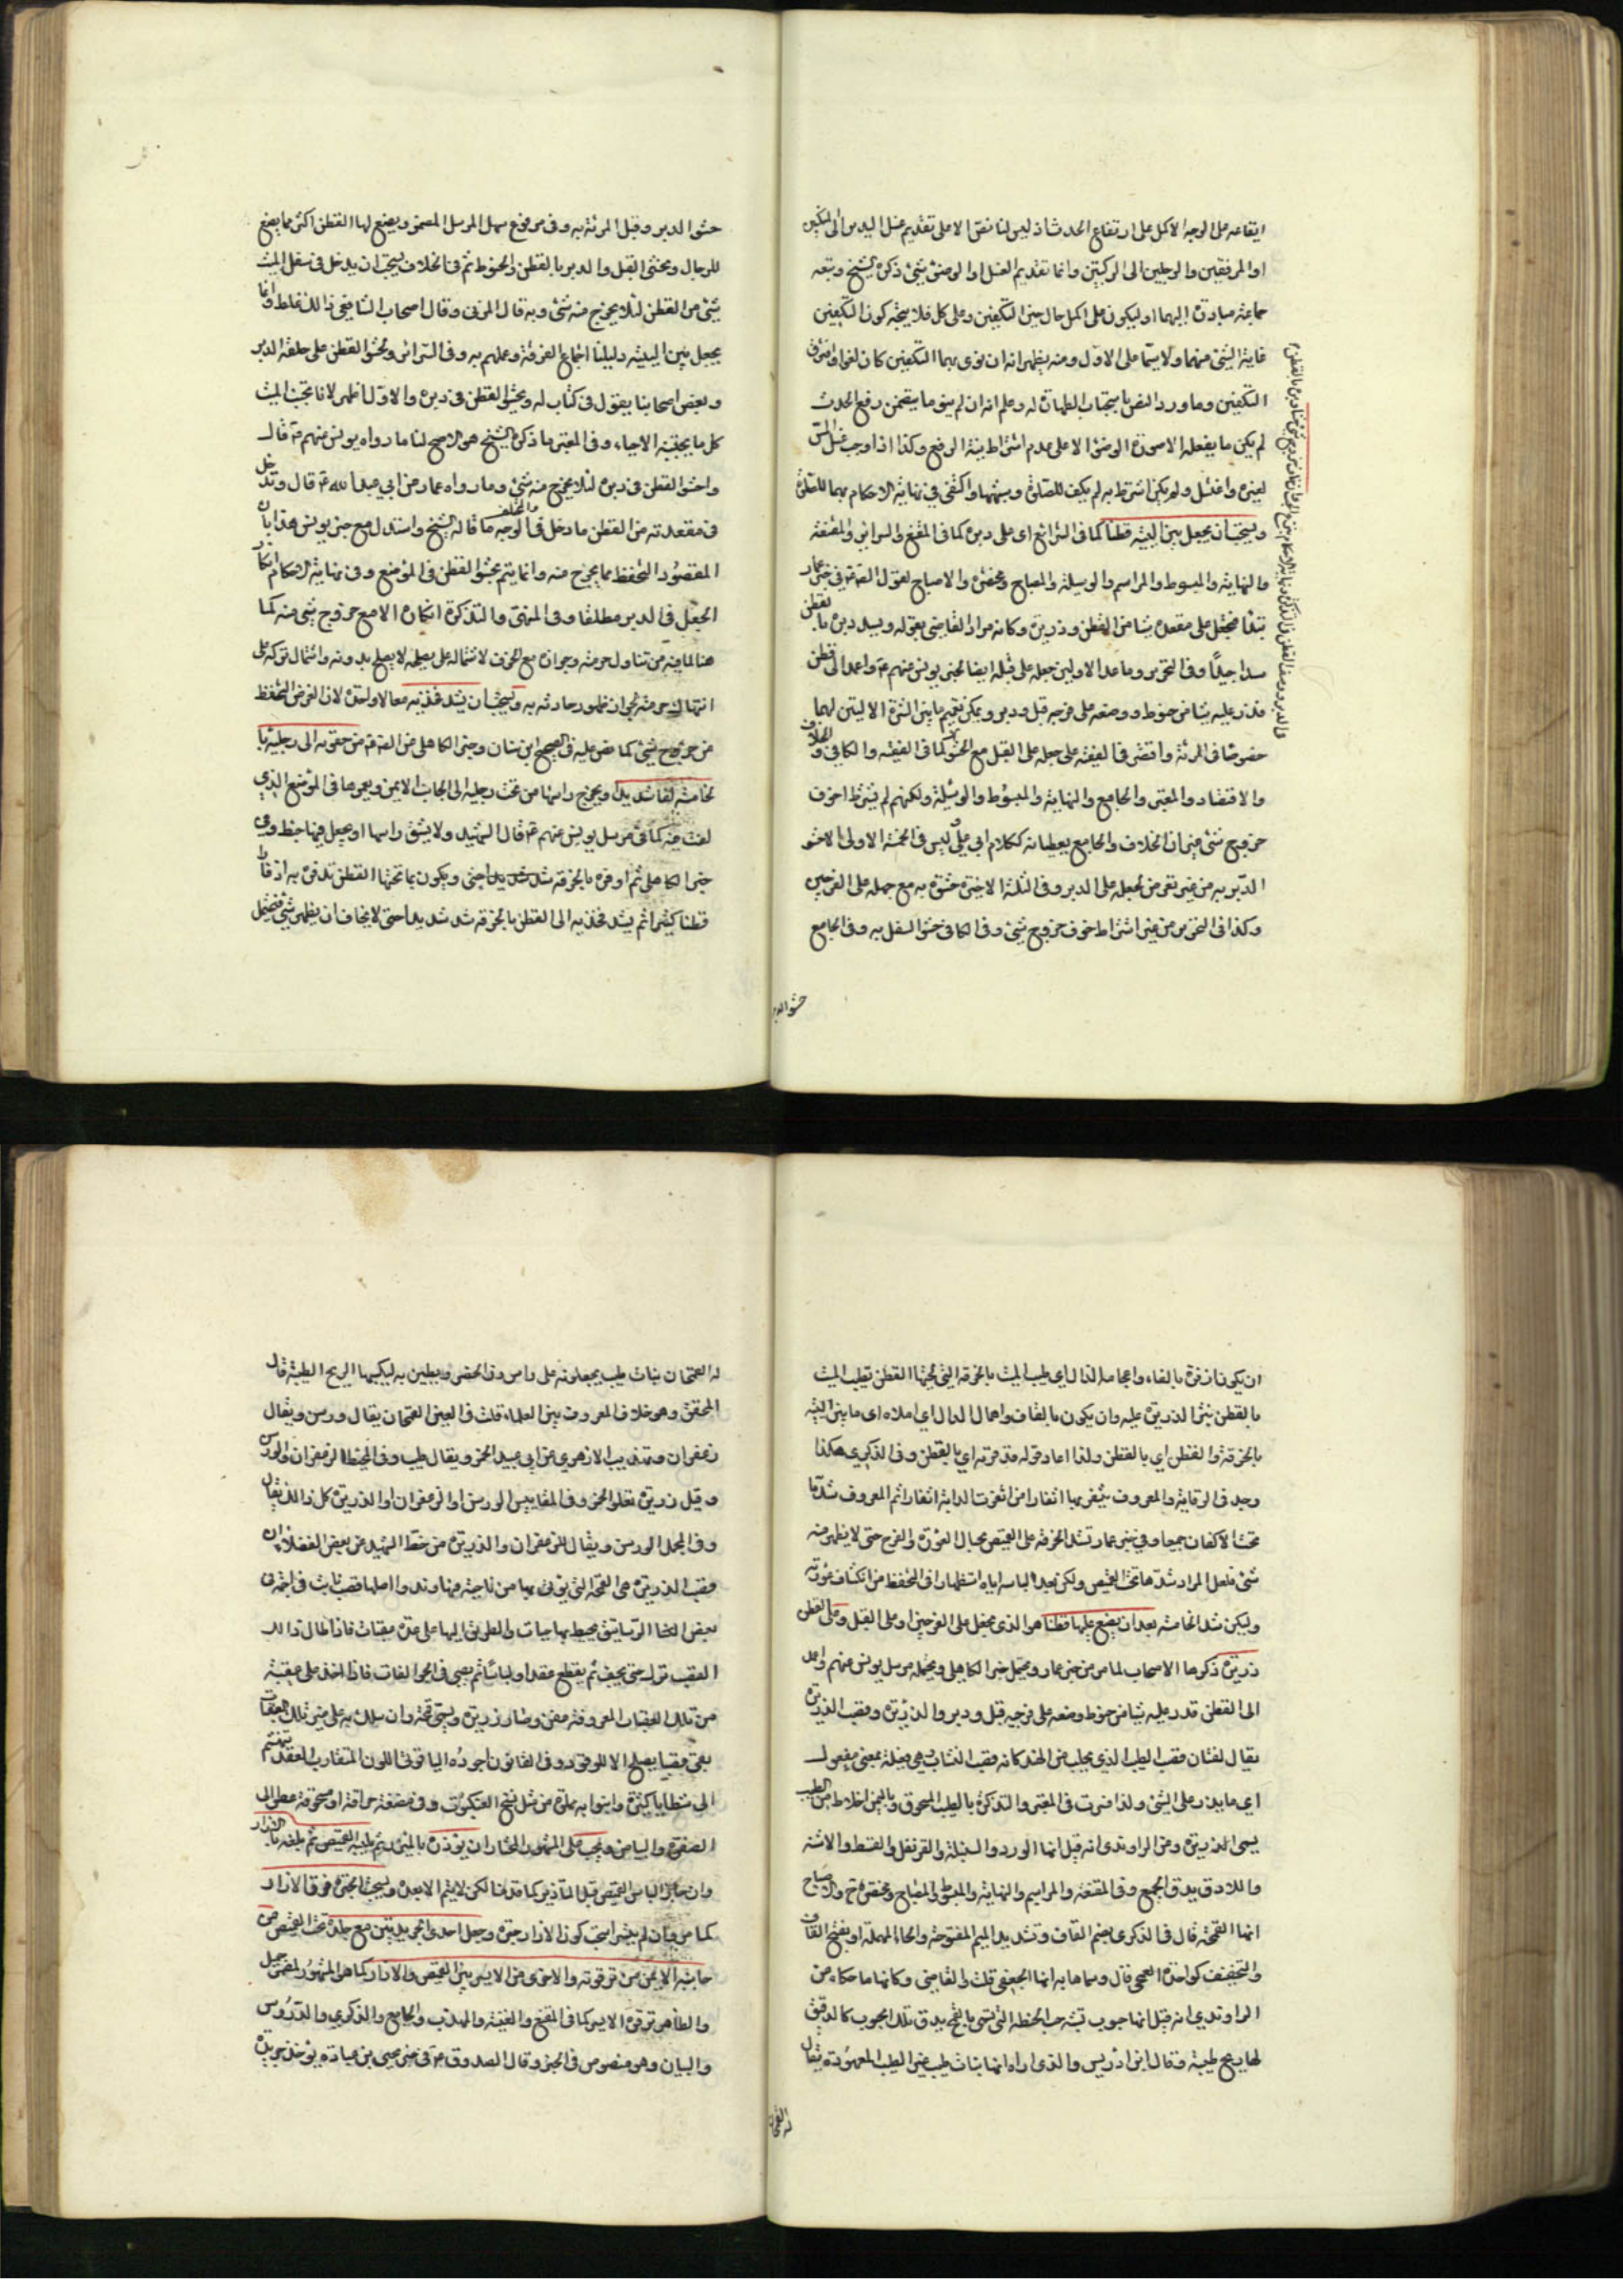 ايقاعه على الوجه الاكمل على ارتفاع الحدث اذ ليس لنا نص الا على تقديم غسل اليدين الى المنكبين
او المرفقين والرجلين الى الركبتين واما تقديم الغسل او الوضوء بشئ ذكره الشيخ وتبعه
جماعة مبادرة اليهما او ليكون على اكمل حال حين التكفين وعلى كل فلا يتجه كون التكفين
غاية الشئ منهما ولا سيما على الاول ومنه يظهر انه ان نوى بهما التكفين كان لغوا
التكفين وما ورد النص باستحباب الطهارة له وعلم انه ان لم ينو ما يتضمن رفع الحدث
لم يكن ما يفعله الا صورة الوضوء الا على عدم اشتراط نية الرفع وكذا اذا وجب غسل المس
لغيره واغتسل ولم يكن اشترط به لم يكف للصلوة واكتفى في نهاية الاحكام بهما للصلوة
ويستحب ان يجعل بين اليتيه قطنا كما في الشرائع اي على دبره كما في المقنع والسرائر والمقنعة
والنهاية والمبسوط والمراسم والوسيلة والمصباح ومختصره والاصباح لقول الصادق ع في خبر عمار
تبدأ فتجعل على مقعدته شيئا من القطن وذريرة وكانه مراد القاضي بقوله ويسد دبره بالقطن
سدا جيدا وفي التحرير وما عدا الاولين جعله على قبله ايضا لخبر يونس عنهم ع واعمد الى قطن
فذر عليه شيئا من حنوط وضعه على فرجه قبل ودبر ويمكن تعميم ما بين الاليتين لهما
خصوصا في المرئة واقتصر في الغنية على جعله على القبل مع الحشو كما في الفقيه والكافي والخلاف
والاقتصاد والمعتبر والجامع والنهاية والمبسوط والوسيلة ولكنهم لم يشترط خوف
خروج شئ غير ان الخلاف والجامع يعطيانه ككلام ابي علي وليس في الخمسة الاولى الا حشو
الدبر به من غير تعرض لجعله على الدبر وفي الثلثة الاخيرة حشوه به مع جعله على الفرجين
وكذا في التحرير من غير اشتراط خوف خروج شئ وفي الكافي حشو السفل به وفي الجامع
حشو الدبر
حشو الدبر وقبل المرئة به وفي مرفوع سهل المرسل المضمر ويصنع لها القطن اكثر مما يصنع
للرجال ويحشى القبل والدبر بالقطن والحنوط ثم في الخلاف يستحب ان يدخل في سفل الميت
شئ من القطن لئلا يخرج منه شئ وبه قال المزني وقال اصحاب الشافعي ذلك غلط وانما
يجعل بين اليتيه دليلنا اجماع الفرقة وعملهم به وفي السرائر ويحشو القطن على حلقة الدبر
وبعض اصحابنا يقول في كتاب له ويحشو القطن في دبره والاول اظهر لانا نجنب الميت
كل ما يجتنبه الاحياء وفي المعتبر ما ذكره الشيخ هو الاصح لنا ما رواه يونس عنهم ع قال
واحشو القطن في دبره لئلا يخرج منه شئ وما رواه عمار عن ابي عبد الله ع قال وتدخل
في مقعدته من القطن ما دخل في المختلف الوجه ما قاله الشيخ واستدل مع خبر يونس هذا بان
المقصود التحفظ مما يخرج منه وانما يتم بحشو القطن في الموضع وفي نهاية الاحكام انكار
الجعل في الدبر مطلقا وفي المنتهى والتذكرة انكاره الا مع خروج شئ منه كما
هنا لما فيه من تناول حرمته وجوازه مع الخوف لاشتماله على مصلحة لا يصلح بدونه واشتمال تركه على
انتهاك حرمته بجواز ظهور حادثه به ويستحب ان يشد فخذيه معا لاولوية لان الغرض التحفظ
من خروج شئ كما نص عليه في صحيح ابن سنان وخبر الكاهلي عن الصادق ع من حقويه الى رجليه بال
خامسة لفا شديدا ويخرج راسها من تحت رجليه الى الجانب الايمن ويغمزها في الموضع الذي
لفت فيه كما في مرسل يونس عنهم ع قال الشهيد ولا يشق راسها او يجعل فيها خيط وفي
خبر الكاهلي ثم اذفره بالخرقة شد شديدا وفي ويكون تحتها القطن تذفره به اذفارا
قطنا كثيرا ثم يشد فخذيه الى القطن بالخرقة شد شديدا حتى لا يخاف ان يظهر شئ فيحتمل
ان يكون اذفره بالفاء واعجام الذال اي طيب الميت بالخرقة التي تحتها القطن تطيب الميت
بالقطن بنثر الذريرة عليه وان يكون بالقاف واهمال الدال اي املاه اي ما بين اليتيه
بالخرقة والقطن اي بالقطن ولذا اعاد قوله قدقرته اي بالقطن وفي الذكرى هكذا
وجد في الرواية والمعروف يثفر بها اثفارا من اثفرت الدابة اثفارا ثم المعروف شدها
تحت الاكفان جميعا وفي خبر عمار تشد الخرقة على القميص بحيال العورة والفرج حتى لا يظهر منه
شئ فلعل المراد شدها تحت القميص ولكن بعد الباسه اياه استظهارا في التحفظ من انكشاف عورته
وليكن شد الخامسة بعد ان يضع عليها قطنا هو الذي يجعل على الفرجين او على القبل وعلى القطن
ذريرة ذكرها الاصحاب لما مر من خبر عمار ويحتمل خبر الكاهلي ويحتمله مرسل يونس عنهم واعمد
الى القطن فذر عليه شيئا من حنوط وضعه على فرجيه قبل ودبر والذريرة وقصب الذريرة
يقال لفتات قصب الطيب الذي يجلب من الهند كانه قصب النشاب وهي فعيلة بمعنى مفعول
اي ما يذر على الشئ ولذا فسرت في المعتبر والتذكرة بالطيب المسحوق وباليمن اخلاط من الطيب
يسمى الذريرة وعن الراوندي انه قيل انها الورد والسنبلة والقرنفل والقسط والاشنة
واللاذن يدق الجميع وفي المقنعة والمراسم والنهاية والمبسوط والمصباح ومختصره والاصباح
انها القمحة قال في الذكرى بضم القاف وتشديد الميم المفتوحة والحاء المهملة او بفتح القاف
والتخفيف كواحدة القمح قال وسماها به ايضا الجعفي قلت والقاضي وكانها ما حكاه عن
الراوندي انه قيل انها حبوب تشبه حب الحنطة التي تسمى بالقمح يدق تلك الحبوب كالدقيق
لها ريح طيبة وقال ابن ادريس والذي اراه انها نبات طيب غير الطيب المعهود يقال
له القمحان
له القمحان نبات طيب يجعلونه على راس دن الخمر ويطين به ليكسبها الريح الطيبة قال
المحقق وهو خلاف المعروف بين العلماء قلت في العين القمحان يقال ورس ويقال
زعفران وتهذيب الازهري عن ابي عبيد الخمر ويقال طيب وفي المحيط الزعفران والورس
وقيل ذريرة تعلو الخمر وفي المقاييس الورس او الزعفران او الذريرة كل ذلك يقال
وفي المجمل الورس ويقال للزعفران والذريرة من خط الشهيد عن بعض الفضلاء ان
قصب الذريرة هي القمحة التي يؤتى بها من ناحية نهاوند واصلها قصب نابت في اجمة في
بعض الرساتيق يحيط بها حيات والطريق اليها على عدة عقبات فاذا طال ذلك
القصب ترك حتى يجف ثم يقطع عقدا وكعابا ثم يعبى في الجوالقات فاذا اخذ على عقبة
من تلك العقبات المعروفة عفن وصار ذريرة ويسمى قمحة وان سلك به على غير تلك العقبات
بقى قصبا يصلح الا للوقود وفي القانون اجوده الياقوتي اللون المتقارب العقد يتهشم
الى شظايا كثيرة وانبوبه مملو من مثل نسج العنكبوت وفي مضغه حرافة ومسحوقه عطر الى
الصفرة والبياض ويجب على المشهور المختار ان يؤزره بالمئزر ثم يلبسه القميص ثم يلفه بالازار
وان جاز الباس القميص قبل المآزر كما قدمنا لكن لا يتم الا بعده ويستحب الحبرة فوق الازار
كما مر وان لم يتيسر استحب كون الازار حبرة وجعل احدى الجريدتين مع جلده تحت القميص من
جانبه الايمن من ترقوته والاخرى من الايسر بين القميص والازار كما هو المشهور
والظاهر ترقوة الايسر كما في المقنع والغنية والمهذب والجامع والذكرى والدروس
والبيان وهو منصوص في الخبر وقال الصادق ع في خبر يحيى بن عبادة يؤخذ جريدة